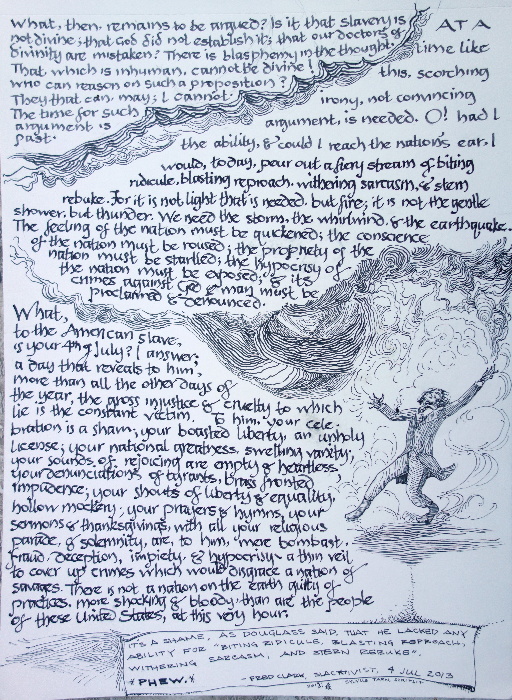 What, then, remains to be argued? Is it that slavery is
not divine; that God did not establish it; that our doctors of
divinity are mistaken? There is blasphemy in the thought.
That which is inhuman, cannot be divine!
who can reason on such a proposition?
They that can, may; I cannot.
The time for such
argument is
past.
AT A
time like
this, scorching
irony, not convincing
argument, is needed. O! had I
the ability, & could I reach the nation's ear, I
would, today, pour out a fiery stream of biting
ridicule, blasting reproach, withering sarcasm, & stern
rebuke. For it is not light that is needed, but fire; it is not the gentle
shower, but thunder. We need the storm, the whirlwind, & the earthquake.
The feeling of the nation must be quickened; the conscience
of the nation must be roused; the propriety of the
nation must be startled; the hypocrisy of
the nation must be exposed; & its
crimes against God & man must be
proclaimed & denounced.
What,
to the American slave,
is your 4th of July? I answer;
a day that reveals to him,
more than all the other days of
the year, the gross injustice & cruelty to which
he is the constant victim. To him, your cele-
bration is a sham; your boasted liberty, an unholy
license; your national greatness, swelling vanity;
your sounds of rejoicing are empty & heartless;
your denunciations of tyrants, brass fronted
impudence; your shouts of liberty & equality,
hollow mockery; your prayers & hymns, your
sermons & thanksgivings, with all your religious
parade, & solemnity, are, to him, mere bombast,
fraud, deception, impiety, & hypocrisy - a thin veil
to cover up crimes which would disgrace a nation of
savages. There is not a nation on the earth guilty of
practices, more shocking & bloody, than are the people
of these United States, at this very hour.
IT'S A SHAME, AS DOUGLASS SAID, THAT HE LACKED ANY
ABILITY FOR "BITING RIDICULE, BLASTING REPROACH,
WITHERING SARCASM, AND STERN REBUKE".
*PHEW.* -FRED CLARK, SLACKTIVIST, 4 JUL 2013